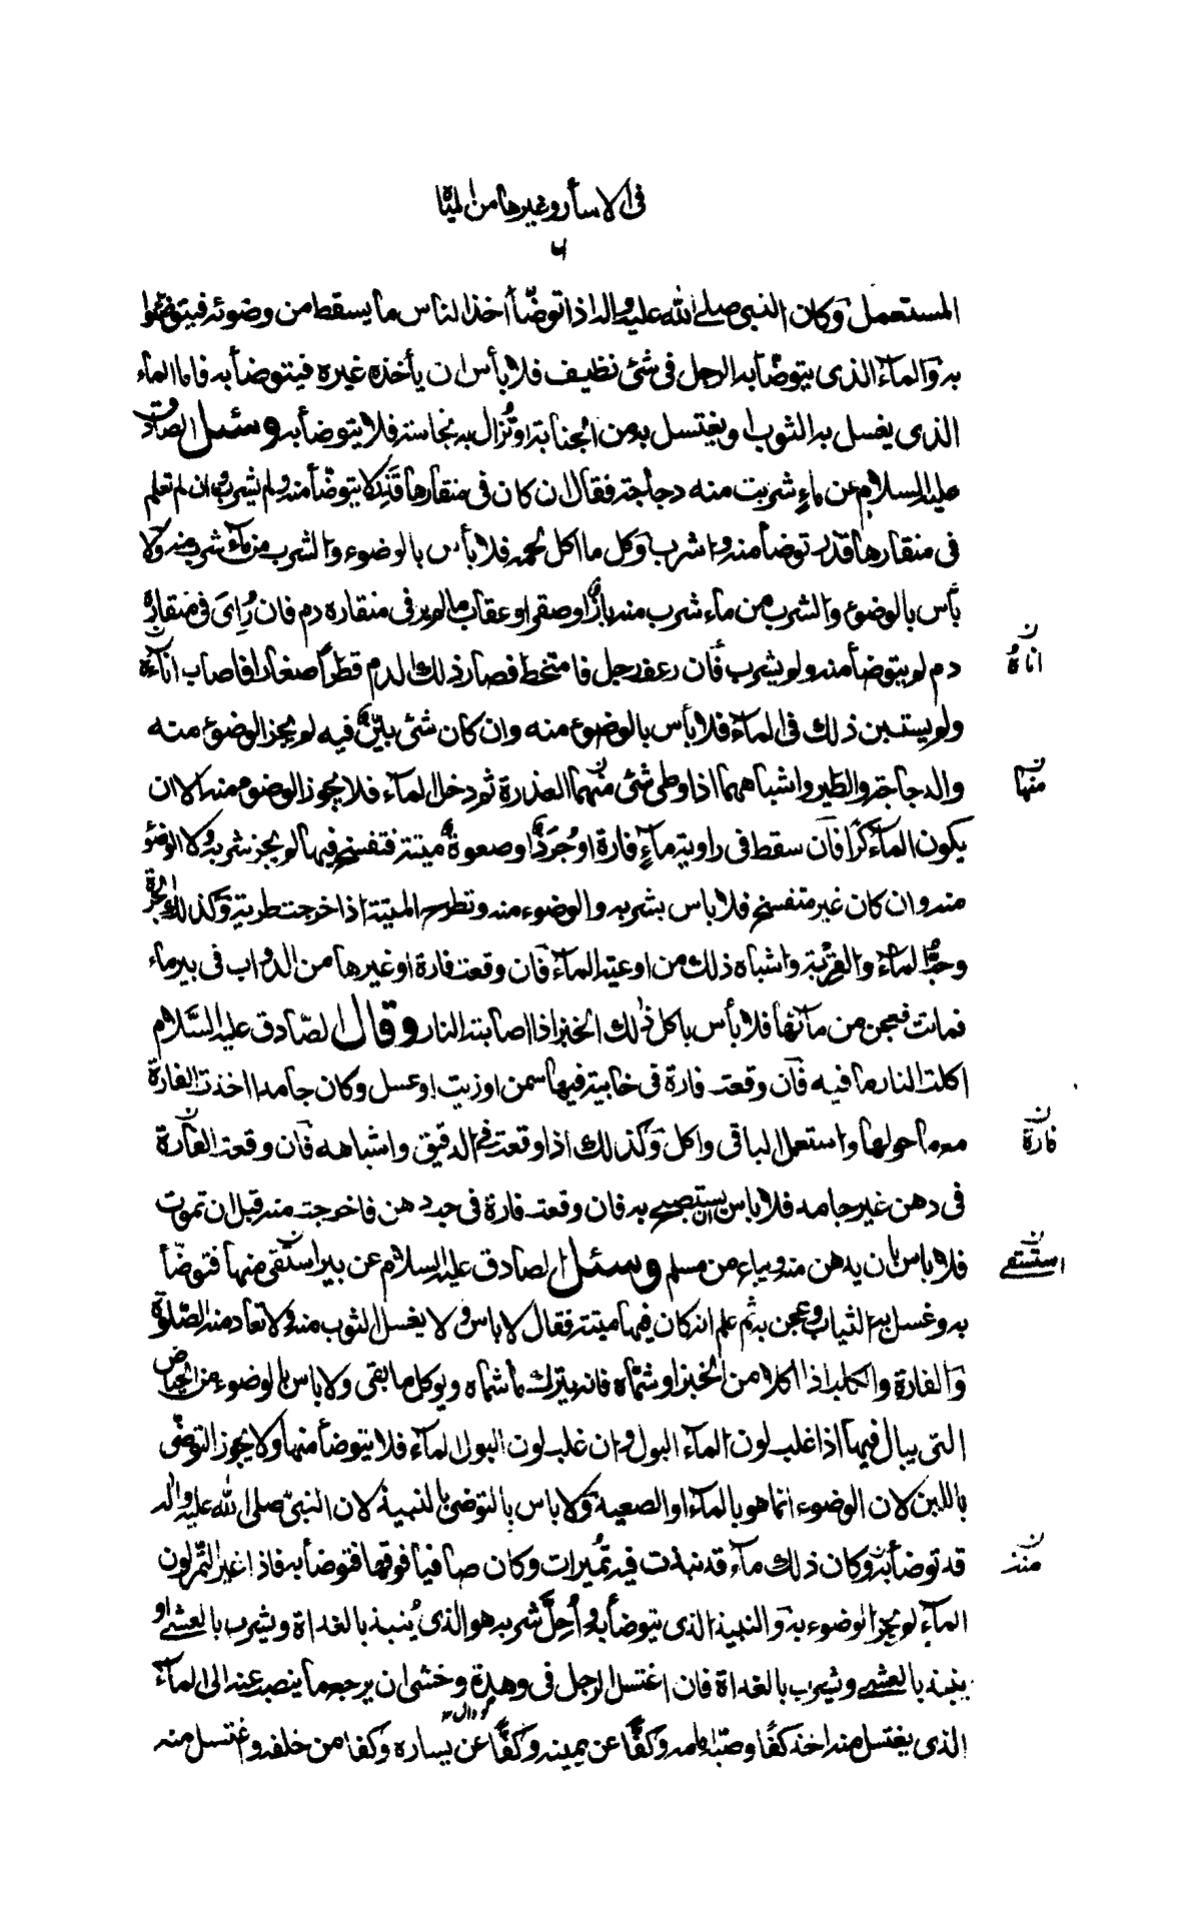 فى الاسأر وغيرها من المياه
٦
المستعمل وكان النبى صلى الله عليه واله اذا توضأ اخذ الناس ما يسقط من وضوئه فيتوضؤا
به والماء الذى يتوضأ به الرجل فى شئ نظيف فلا بأس ان يأخذه غيره فيتوضأ به فاما الماء
الذى يغسل به الثوب او يغتسل به من الجنابة او تزال به نجاسة فلا يتوضأ به وسئل الصادق
عليه السلام عن ماء شربت منه دجاجة فقال ان كان فى منقارها قذر لا يتوضأ منه ولم يشرب وان لم تعلم
فى منقارها قذر توضأ منه واشرب وكل ما اكل لحمه فلا بأس بالوضوء والشرب من ماء شرب منه ولا
بأس بالوضوء والشرب من ماء شرب منه باز او صقر او عقاب ما لم ير فى منقاره دم فان رأى فى منقاره
دم لم يتوضأ منه ولم يشرب فأن رعف رجل فامتخط فصار ذلك الدم قطرا صغارا فاصاب اناءه
ن اناءه
ولم يستبن ذلك فى الماء فلا بأس بالوضوع منه وان كان شئ بين فيه لم يجز الوضوع منه
والدجاجة والطير واشباههما اذا وطى شئ منهما العذرة ثم دخل الماء فلا يجوز الوضوء منه الا ان
ن منها
يكون الماء كرا فأن سقط فى راوية ماء فارة او جرذ او صعوة ميتة فتفسخ فيها لم يجز شربه ولا الوضوء
منه وان كان غير متفسخ فلا باس بشربه والوضوء منه وتطرح الميتة اذا خرجت طرية وكذلك الجرة
وحب الماء والقربة واشباه ذلك من اوعية الماء فأن وقعت فارة او غيرها من الدواب فى بير ماء
فماتت فعجن من مائها فلا بأس باكل ذلك الخبز اذا اصابته النار وقال الصادق عليه السلام
اكلت النار ما فيه فأن وقعت فارة فى خابية فيها سمن او زيت او عسل وكان جامدا اخذت الفارة
مع ما حولها واستعمل الباقى واكل وكذلك اذا وقعت فى الدقيق واشباهه فأن وقعت الفأرة
ن فارة
فى دهن غير جامد فلا باس ان يستصبح به فان وقعت فارة فى حب دهن فاخرجت منه قبل ان تموت
فلا باس بان يدهن منه ويباع من مسلم وسئل الصادق عليه السلام عن بير استقى منها فتوضأ
ن استسقى
به وغسل به الثياب وعجن به ثم علم انه كان فيها ميتة فقال لا باس ولا يغسل الثوب منه ولا تعاد منه الصلوة
والفارة والكلب اذا اكلا من الخبز او شماه فانه يترك ما شماه ويوكل ما بقى ولا باس بالوضوء من الحياض
التى يبال فيها اذا غلب لون الماء البول وان غلب لون البول الماء فلا يتوضأ منها ولا يجوز التوضى
باللبن لان الوضوء انما هو بالماء او الصعيد ولا باس بالتوضى بالنبيذ لان النبى صلى الله عليه واله
قد توضأ به وكان ذلك ماء قد نبذت فيه تميرات وكان صافيا فوقها فتوضأ به فاذا غير التمر لون
الماء لم يجز الوضوء به والنبيذ الذى يتوضأ به واحل شربه هو الذى ينبذ بالغداة ويشرب بالعشى او
ينبذ بالعشى ويشرب بالغداة فان اغتسل الرجل فى وهدة وخشى ان يرجع ما ينصب عنه الى الماء
كودال
الذى يغتسل منه اخذ كفا وصبه امامه وكفا عن يمينه وكفا عن يساره وكفا من خلفه واغتسل منه